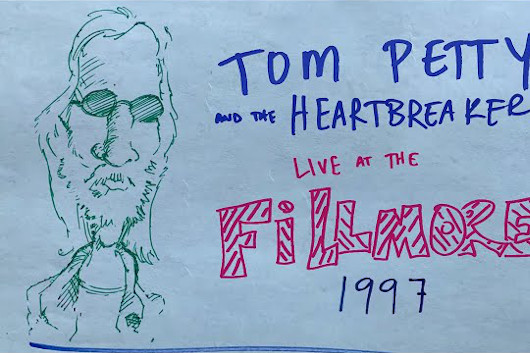 TOM PETTY
AND THE HEARTBREAKER
LIVE AT THE
FiLLMORE
1997